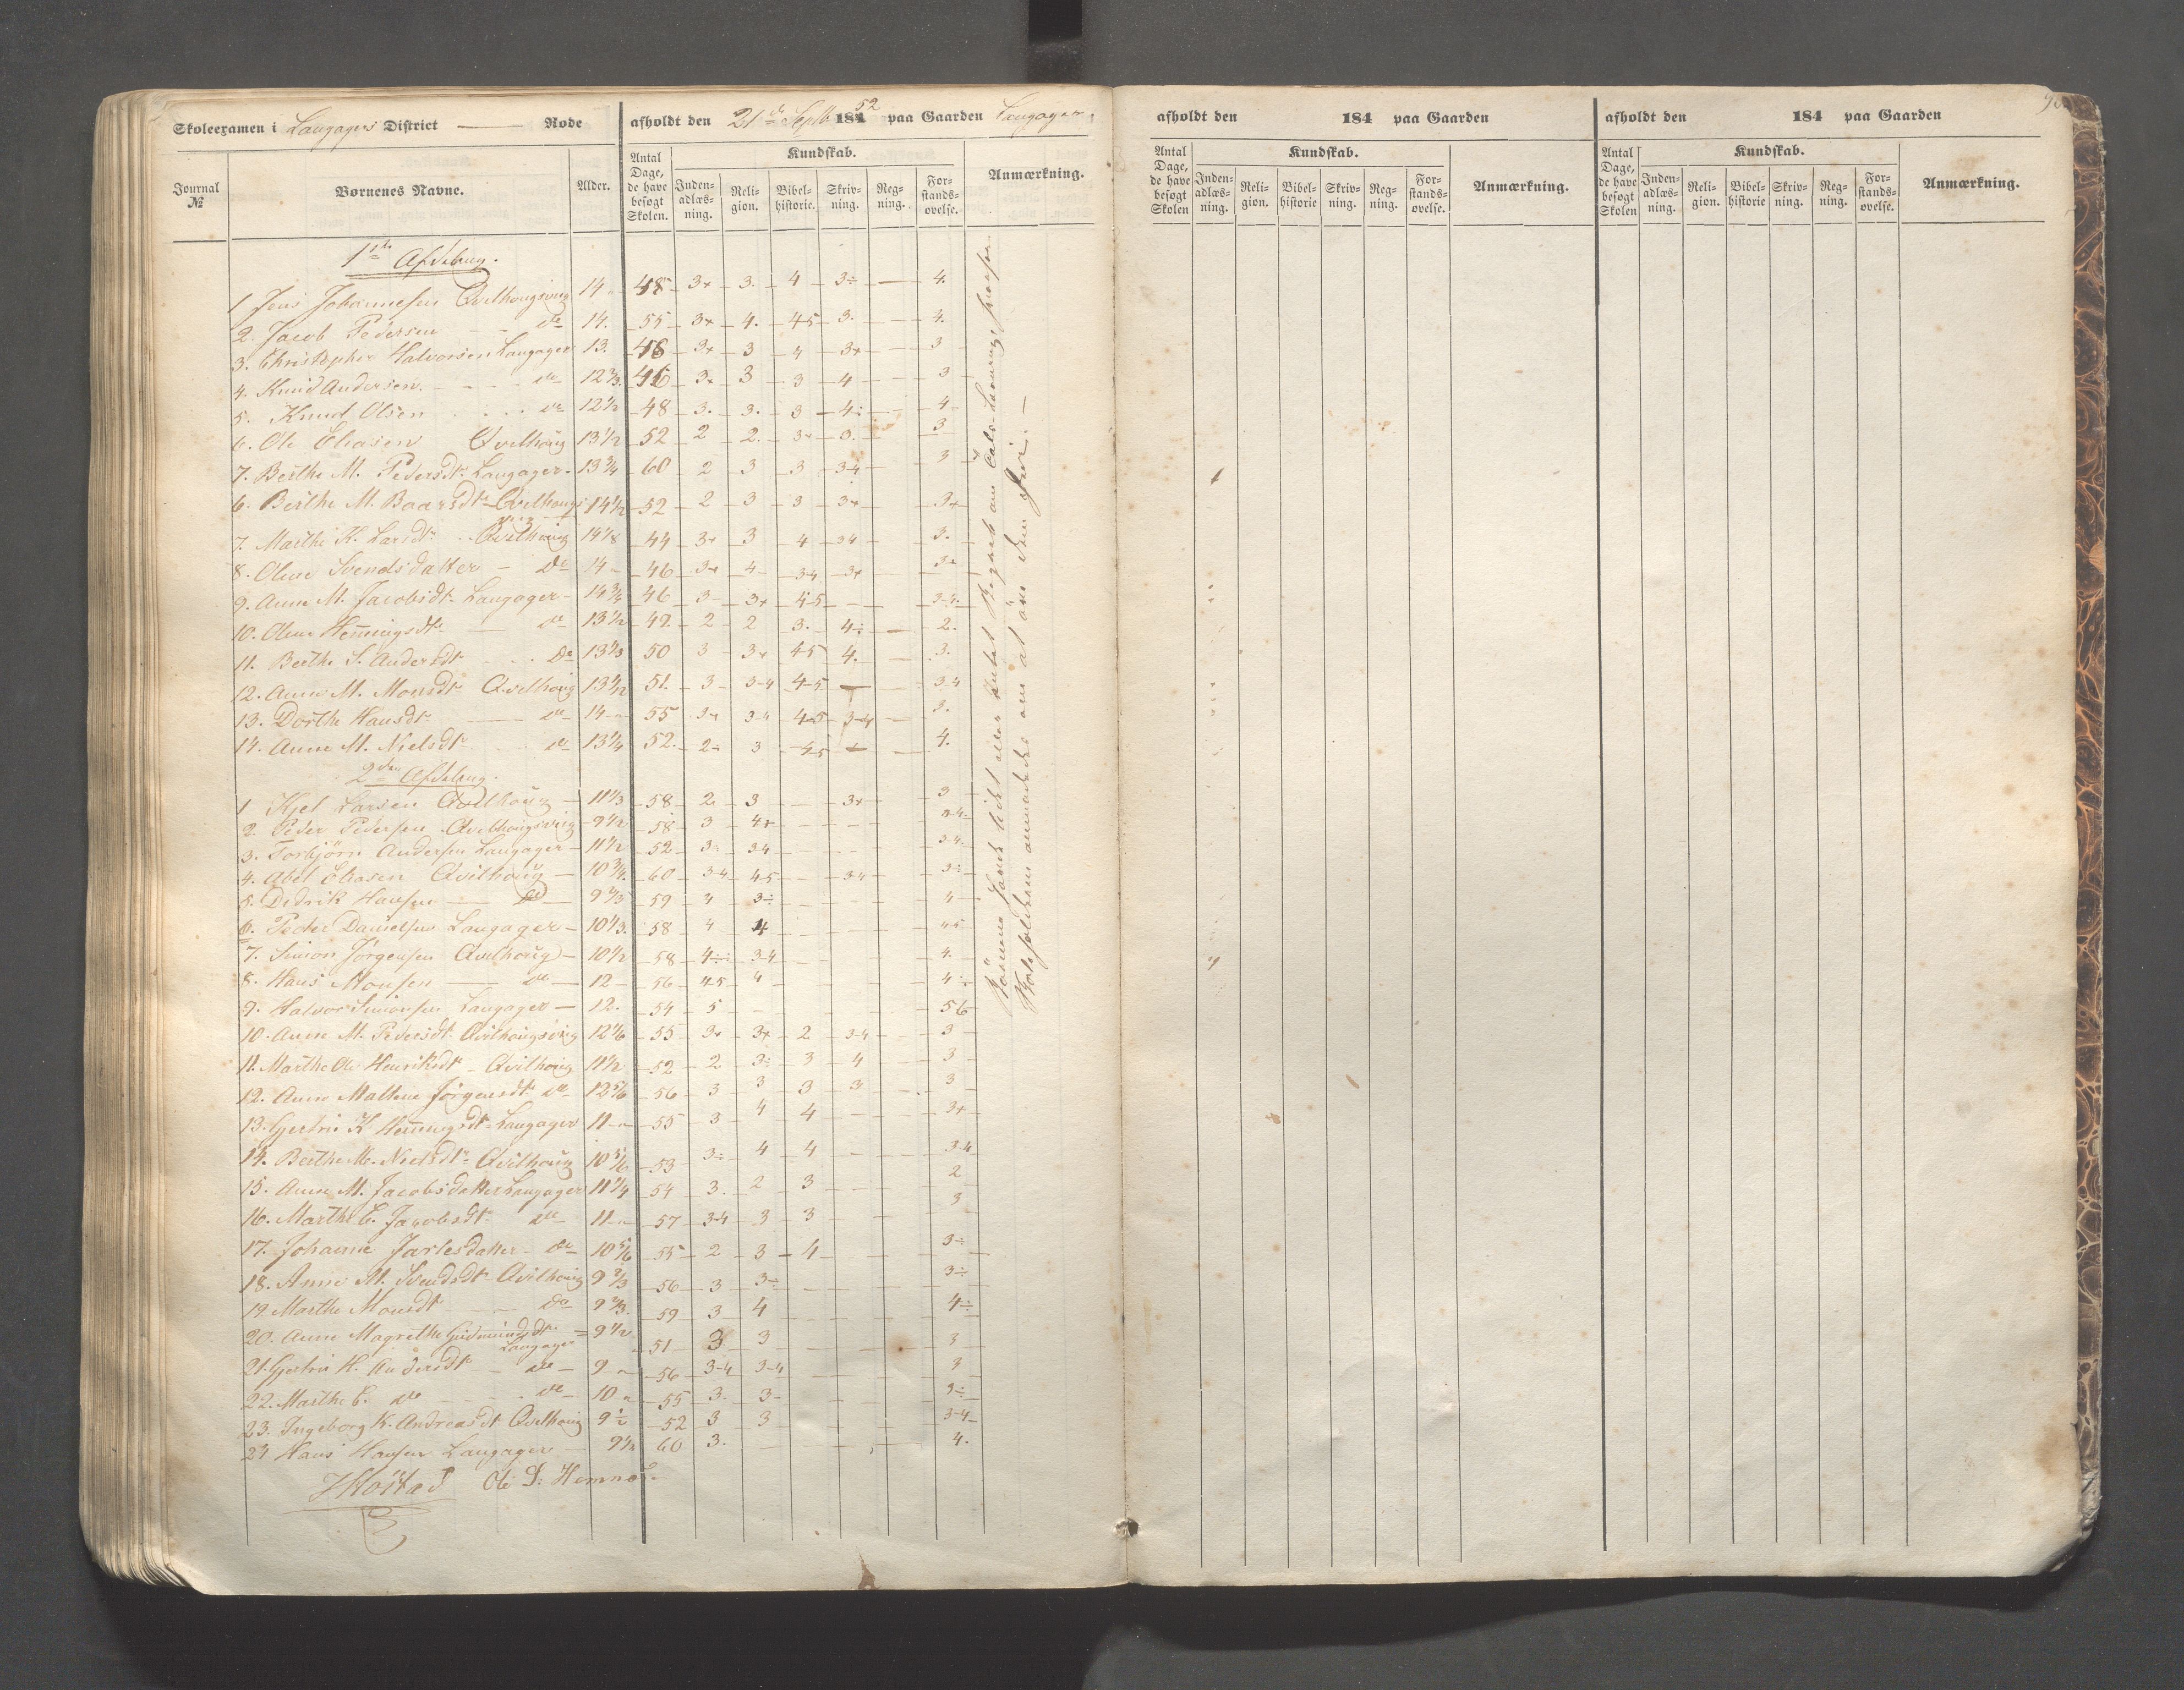 Skoleexamen i Langagers District — Rode afholdt den 21de Septb 1852 paa Gaarden Langager.
Journal № Børnenes Navne. Alder. Antal Dage, de have besøgt Skolen. Kundskab. Inden-adlæs-ning. Reli-gion. Bibel-historie. Skriv-ning. Reg-ning. For-stands-øvelse. Anmærkning.
1ste Afdeling.
1 Jens Johannesen Qvelhougsvig 14 48 3+ 3. 4 3÷ — 4.
2. Jacob Pedersen — do 14. 55 3+ 4. 45 3. — 4.
3. Christopher Halvorsen Langager 13. 46 3+ 3 4 3+ — 3
4. Knud Andersen — do 12 2/3. 46 3+ 3 3 4 — 3
5. Knud Olsen — do 12 1/2 48 3. 3. 3 4÷ — 4
6. Ole Eliasen Qvelhoug 13 1/2 52 2 2. 3+ 3. — 3
7. Berthe M. Pedersdtr Langager 13 3/4 60 2 3 3 34 — 3
6. Berthe M. Baarsdtr Qvelhougs 14 1/2 52 2 3 3 3+ 3+
7. Marthe K. Larsdtr Qvelhoug 14 1/8 44 3+ 3 4 34 3.
8. Oline Svendsdatter — do 14 46 3+ 4 34 3+ 3+
9. Anne M. Jacobsdtr Langager 14 3/4 46 3 3+ 45 — 3-4.
10. Oline Hemingsdtr — do 13 1/2 49. 2 2 3. 4÷ — 2.
11. Berthe S. Andersdtr — do 13 1/3 50 3 3+ 45 4. — 3.
12. Anne M. Monsdtr Qvelhoug 13 1/2 51. 3 3-4 4-5 — 3-4
13. Dorthe Hansdtr — do 14 55 3+ 3-4 4-5 3-4 — 3.
14. Anne M. Nielsdtr — do 13 1/4 52. 2÷ 3 45 — 4.
2den Afdeling.
1 Kjel Larsen Qvelhoug 11 1/3 58 2. 3 — 3+ 3
2. Peder Pedersen Qvelhougsvig 9 1/2 58 3 4+ — 3-4.
3. Torbjørn Andersen Langager 11 1/2 52 3÷ 34 — 3-4.
4. Abel Eliasen Qvelhoug 10 3/4. 60 3-4 45 — 34 3÷
5. Didrik Hansen — do 9 2/3 59 4 3÷ — 4
6. Peder Danielsen Langager 10 1/3. 58 4 4 — 45
7. Simon Jørgensen Qvelhoug 10 1/2 58 4÷ 3-4 — 4.
8. Hans Monsen — do 12 56 45 4 — 4÷
9. Halvor Simonsen Langager 12. 54 5 — 56
10. Anne M. Pedersdtr Qvelhougsvig 12 1/6 55 3+ 3+ 2 3-4 3
11. Marthe Ol. Henriksdtr Qvelhoug 11 1/2 52 2 3÷ 3 4 3
12. Anne Malene Jørgensdtr do 12 5/6 56 3 3 3 3 3
13. Gjertrue K Hemingsdtr Langager 11 55 3 4 4 — 3+
14. Berthe M. Nielsdtr Qvelhoug 10 5/6 53 3÷ 4 4 — 3-4
15. Anne M. Jacobsdatter Langager 11 1/4 54 3. 2 3 — 2
16. Marthe C. Jacobsdtr do 11 57 34 3 3 — 3
17. Johanne Jarlesdatter do 10 5/6 55 2 3 4 3÷
18. Anne M. Svendsdtr Qvelhoug 9 2/3 56 3 3÷ 3÷
19. Marthe Monsdtr — do 9 2/3. 59 3 4 4÷
20. Anne Magrethe Gudmundsdtr Langager 9 1/2 51 3 3 3
21. Gjertrue H. Andersdtr — do 9 56 3-4 3-4 3
22. Marthe C. do — do 10 55 3. 3 3÷
23. Ingeborg K. Andreasdtr Qvelhoug 9 1/2 52 3 3 3-4
24 Hans Hansen Langager 9 1/2 60 3. — 4.
Ole D. Hemnes
afholdt den 184 paa Gaarden
Antal Dage, de have besøgt Skolen Kundskab. Inden-adlæs-ning. Reli-gion. Bibel-historie Skriv-ning. Reg-ning. For-stands-øvelse. Anmærkning.
afholdt den 184 paa Gaarden
Antal Dage, de have besøgt Skolen Kundskab. Inden-adlæs-ning. Reli-gion. Bibel-historie Skriv-ning. Reg-ning. For-stands-øvelse. Anmærkning.